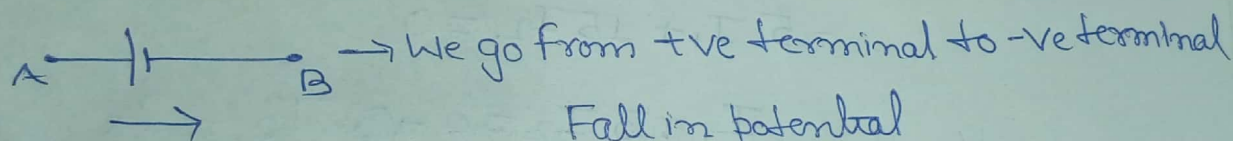 A B → We go from +ve terminal to -ve terminal
Fall in potential